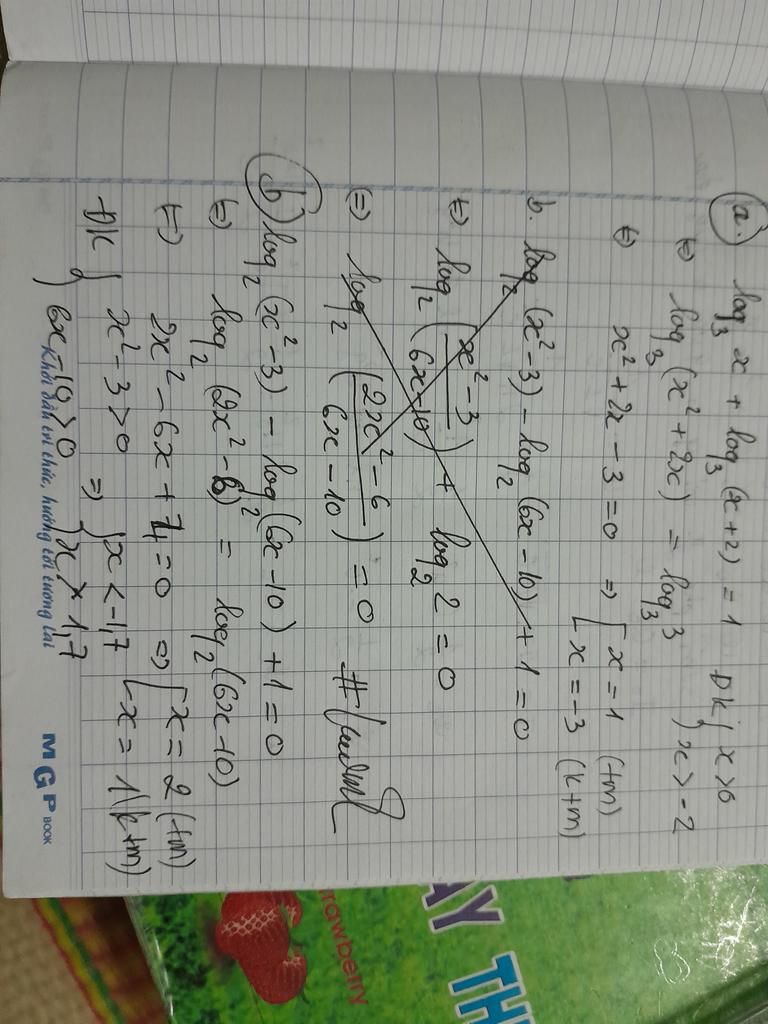 a. log₃ x + log₃ (x+2) = 1 ĐK { x > 0
⇔ log₃ (x² + 2x) = log₃ 3 x > -2
⇔ x² + 2x - 3 = 0 ⇒ [ x = 1 (tm)
x = -3 (ktm)
b. log₂ (x² - 3) - log₂ (6x - 10) + 1 = 0
⇔ log₂ (x² - 3 / 6x - 10) + log₂ 2 = 0
⇔ log₂ (2x² - 6 / 6x - 10) = 0
b) log₂ (x² - 3) - log₂ (6x - 10) + 1 = 0
⇔ log₂ (2x² - 6) = log₂ (6x - 10)
⇔ 2x² - 6x + 4 = 0 ⇒ [ x = 2 (tm)
x = 1 (ktm)
ĐK { x² - 3 > 0 ⇒ { x < -1,7
6x - 10 > 0 x > 1,7
Khởi đầu tri thức, hướng tới tương lai
MGP BOOK
trawberry
AY TH